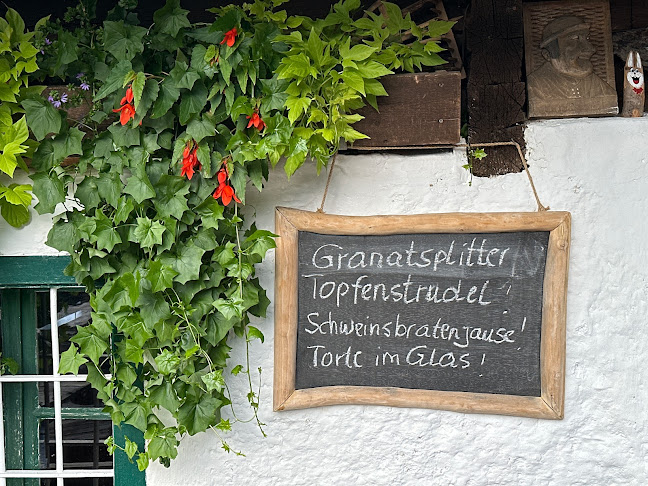 Granatsplitter
Topfenstrudel!
Schweinsbratenjause!
Torte im Glas!